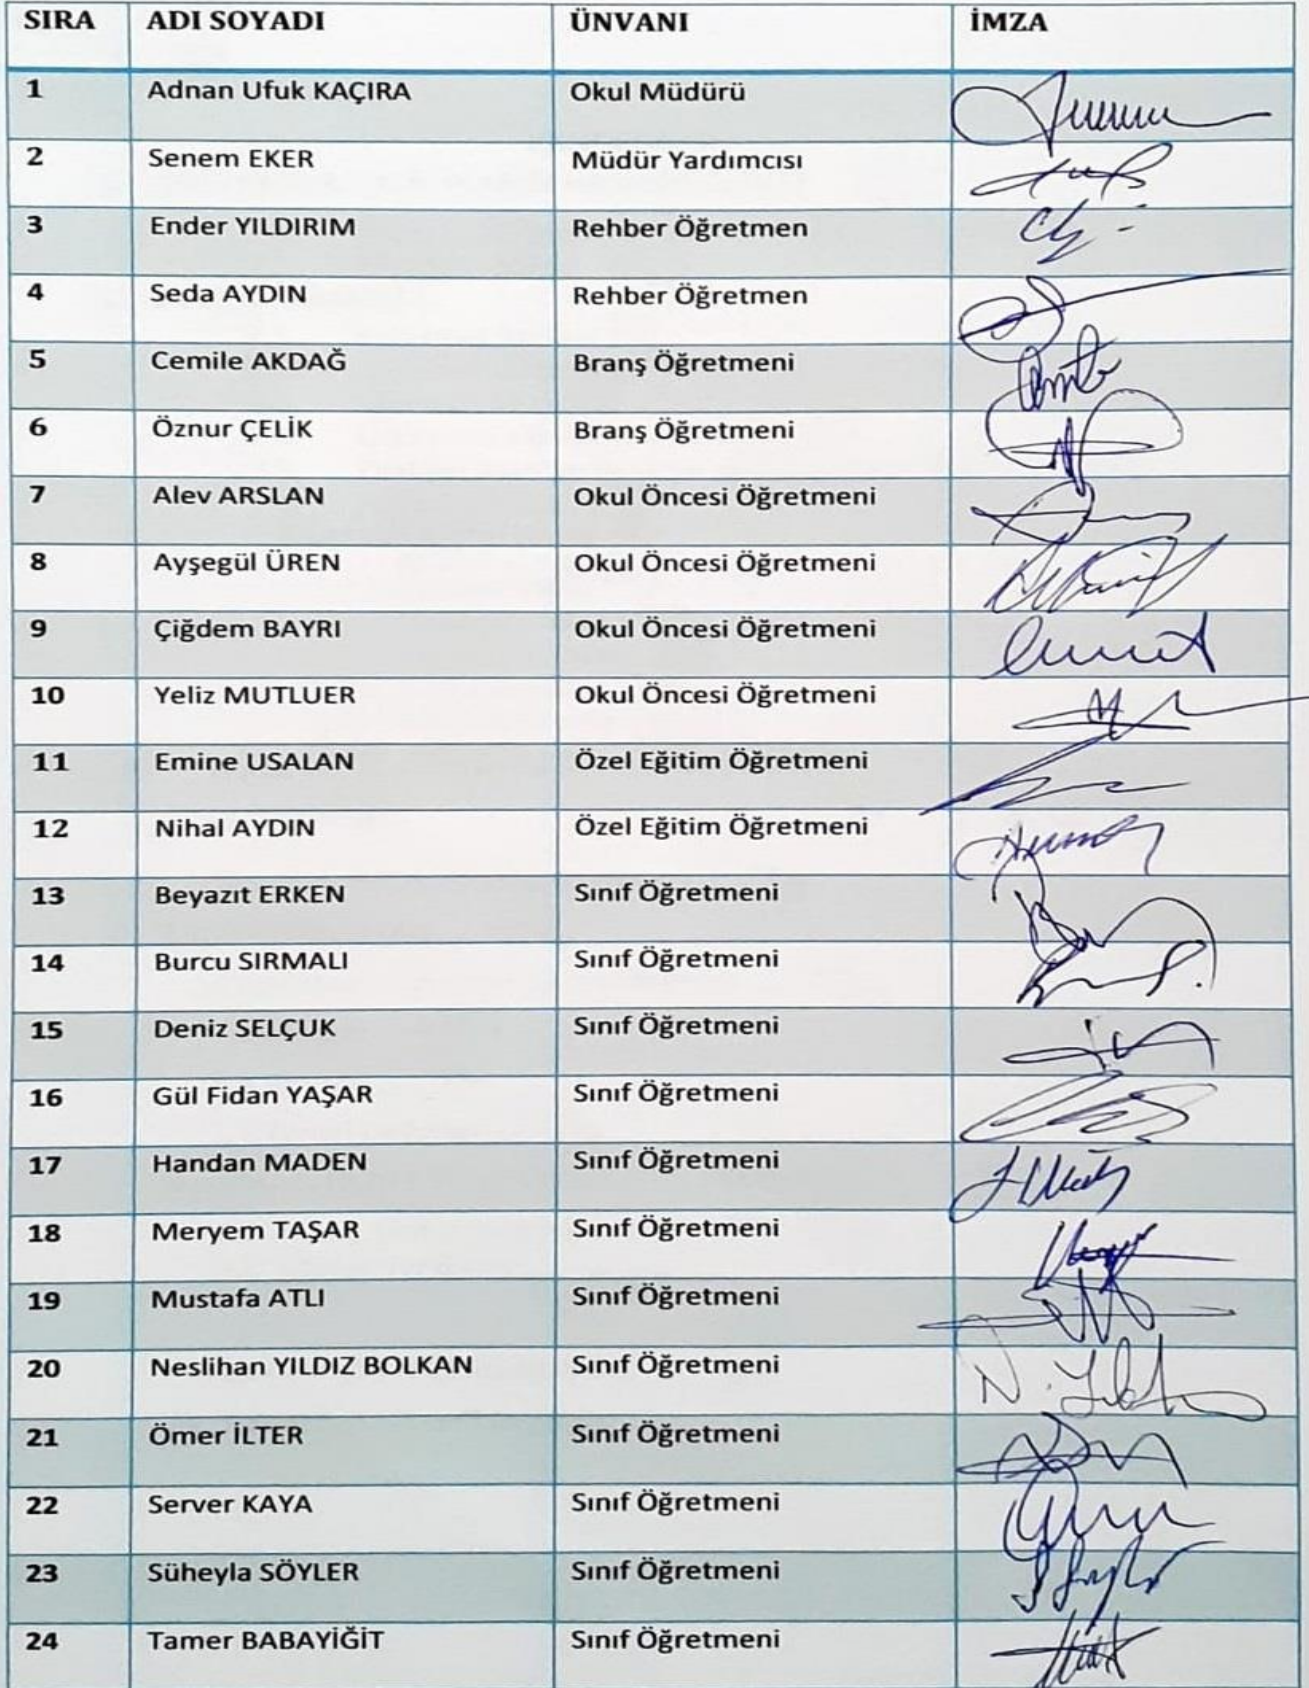 SIRA ADI SOYADI ÜNVANI İMZA
1 Adnan Ufuk KAÇIRA Okul Müdürü
2 Senem EKER Müdür Yardımcısı
3 Ender YILDIRIM Rehber Öğretmen
4 Seda AYDIN Rehber Öğretmen
5 Cemile AKDAĞ Branş Öğretmeni
6 Öznur ÇELİK Branş Öğretmeni
7 Alev ARSLAN Okul Öncesi Öğretmeni
8 Ayşegül ÜREN Okul Öncesi Öğretmeni
9 Çiğdem BAYRI Okul Öncesi Öğretmeni
10 Yeliz MUTLUER Okul Öncesi Öğretmeni
11 Emine USALAN Özel Eğitim Öğretmeni
12 Nihal AYDIN Özel Eğitim Öğretmeni
13 Beyazıt ERKEN Sınıf Öğretmeni
14 Burcu SIRMALI Sınıf Öğretmeni
15 Deniz SELÇUK Sınıf Öğretmeni
16 Gül Fidan YAŞAR Sınıf Öğretmeni
17 Handan MADEN Sınıf Öğretmeni
18 Meryem TAŞAR Sınıf Öğretmeni
19 Mustafa ATLI Sınıf Öğretmeni
20 Neslihan YILDIZ BOLKAN Sınıf Öğretmeni
21 Ömer İLTER Sınıf Öğretmeni
22 Server KAYA Sınıf Öğretmeni
23 Süheyla SÖYLER Sınıf Öğretmeni
24 Tamer BABAYİĞİT Sınıf Öğretmeni